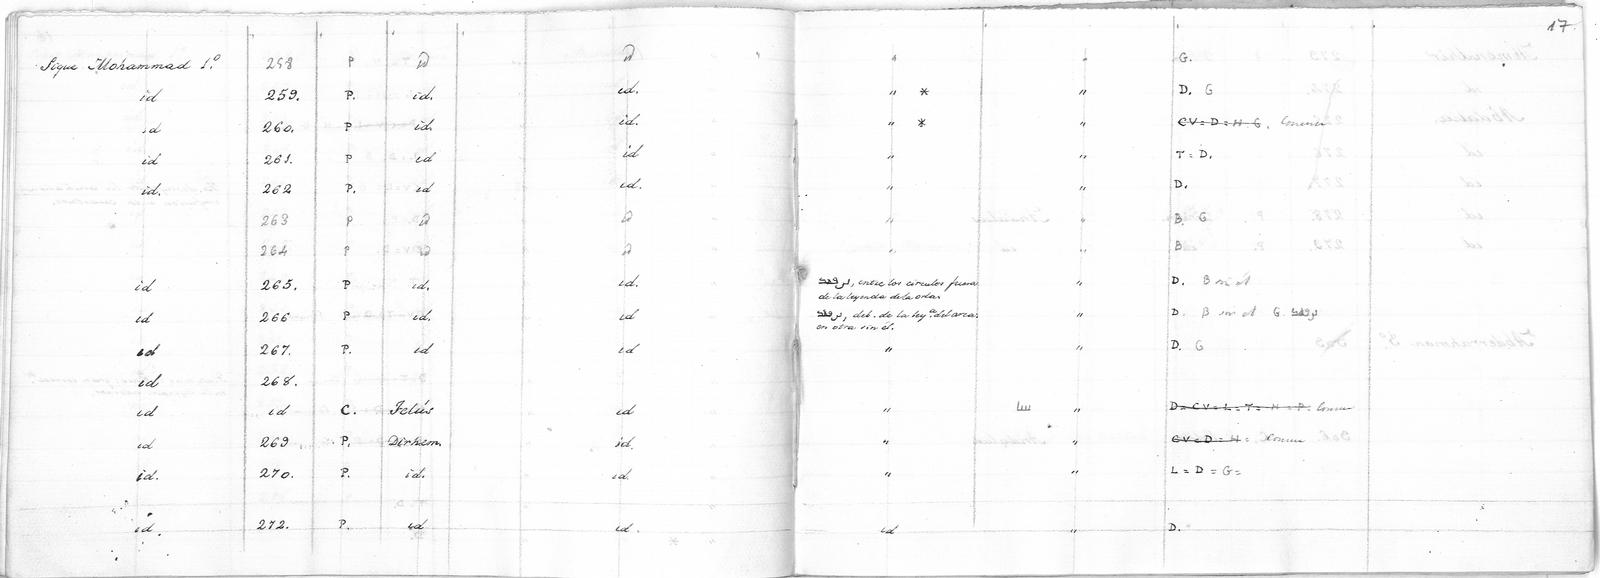 17.
Sigue Mohammad 1.º 258 P id id " " G.
id 259. P. id. id. " * " D. G
id 260. P id. id. " * " CV = D = H G. Comun
id 261. P id id " " T = D.
id. 262 P. id id. " " D.
263 P id id " " B G
264 P id id " " B
id 265. P id. id. entre los circulos fuera " D. B sin él
de la leyenda de la orla.
id 266 P id. id , deb. de la ley.ª del area. " D. B sin él G.
en otra sin él.
id 267. P. id id " " D. G
id 268.
id id C. Felús id " " D = CV = L = T = H = P. Comun
id 269 P. Dirhem. id. " " CV = D = H = Comun
id. 270. P. id. id. " " L = D = G =
id. 272. P. id id. id " D.